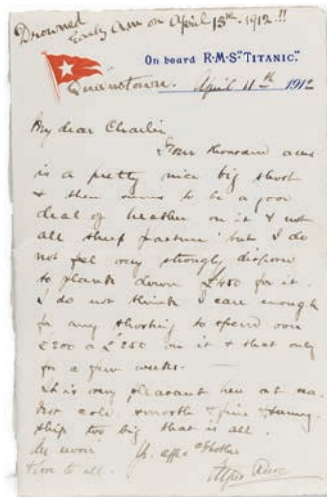 Drowned
Early Am on April 15th 1912!!
On board R·M·S "TITANIC."
Queenstown. April 11th 1912
My dear Charlie
Four thousand acres
is a pretty nice big shoot
& there seems to be a good
deal of heather on it & not
all sheep pasture but I do
not feel very strongly disposed
to plank down £400 for it.
I do not think I care enough
for any shooting to spend over
£200 or £250 on it & that only
for a few weeks.
It is very pleasant here at sea.
Not cold smooth & fine & sunny.
Ship too big that is all.
Yr. affec
to all.